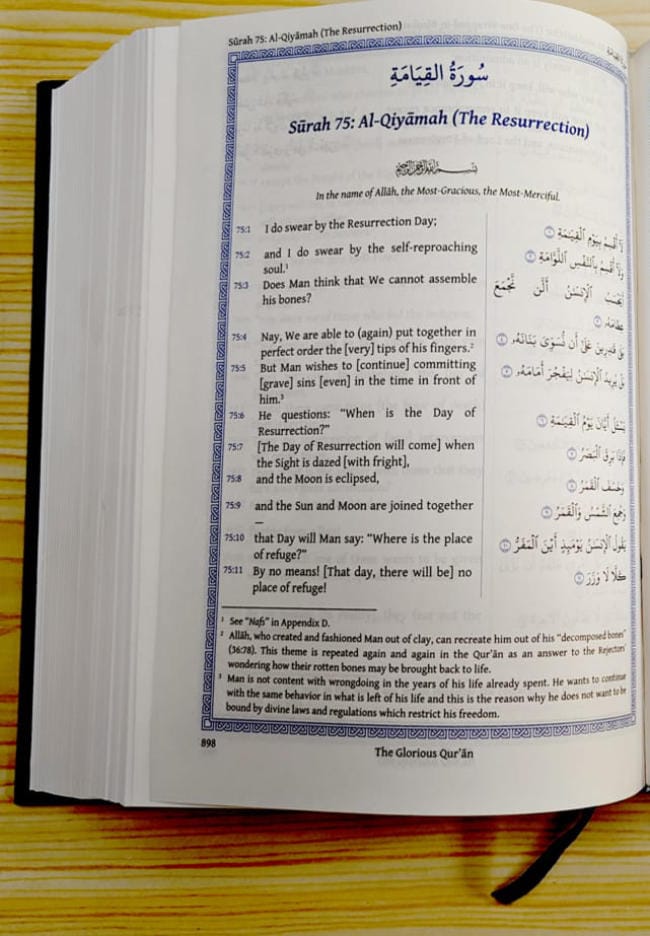 Sūrah 75: Al-Qiyāmah (The Resurrection)
سُورَةُ القِيَامَةِ
Sūrah 75: Al-Qiyāmah (The Resurrection)
بِسْمِ اللَّهِ الرَّحْمَٰنِ الرَّحِيمِ
In the name of Allāh, the Most-Gracious, the Most-Merciful.
75:1 I do swear by the Resurrection Day;
75:2 and I do swear by the self-reproaching
soul.¹
75:3 Does Man think that We cannot assemble
his bones?
75:4 Nay, We are able to (again) put together in
perfect order the [very] tips of his fingers.²
75:5 But Man wishes to [continue] committing
[grave] sins [even] in the time in front of
him.³
75:6 He questions: “When is the Day of
Resurrection?”
75:7 [The Day of Resurrection will come] when
the Sight is dazed [with fright],
75:8 and the Moon is eclipsed,
75:9 and the Sun and Moon are joined together
—
75:10 that Day will Man say: “Where is the place
of refuge?”
75:11 By no means! [That day, there will be] no
place of refuge!
لَآ أُقْسِمُ بِيَوْمِ ٱلْقِيَٰمَةِ ١
وَلَآ أُقْسِمُ بِٱلنَّفْسِ ٱللَّوَّامَةِ ٢
أَيَحْسَبُ ٱلْإِنسَٰنُ أَلَّن نَّجْمَعَ
عِظَامَهُۥ ٣
بَلَىٰ قَٰدِرِينَ عَلَىٰٓ أَن نُّسَوِّىَ بَنَانَهُۥ ٤
بَلْ يُرِيدُ ٱلْإِنسَٰنُ لِيَفْجُرَ أَمَامَهُۥ ٥
يَسْـَٔلُ أَيَّانَ يَوْمُ ٱلْقِيَٰمَةِ ٦
فَإِذَا بَرِقَ ٱلْبَصَرُ ٧
وَخَسَفَ ٱلْقَمَرُ ٨
وَجُمِعَ ٱلشَّمْسُ وَٱلْقَمَرُ ٩
يَقُولُ ٱلْإِنسَٰنُ يَوْمَئِذٍ أَيْنَ ٱلْمَفَرُّ ١٠
كَلَّا لَا وَزَرَ ١١
¹ See “Nafs” in Appendix D.
² Allāh, who created and fashioned Man out of clay, can recreate him out of his “decomposed bones”
(36:78). This theme is repeated again and again in the Qur’ān as an answer to the Rejectors’
wondering how their rotten bones may be brought back to life.
³ Man is not content with wrongdoing in the years of his life already spent. He wants to continue
with the same behavior in what is left of his life and this is the reason why he does not want to be
bound by divine laws and regulations which restrict his freedom.
898
The Glorious Qur’ān